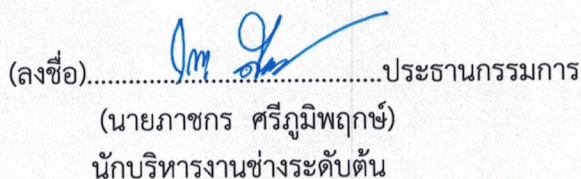 (ลงชื่อ)........................................ประธานกรรมการ
(นายภาชกร ศรีภูมิพฤกษ์)
นักบริหารงานช่างระดับต้น